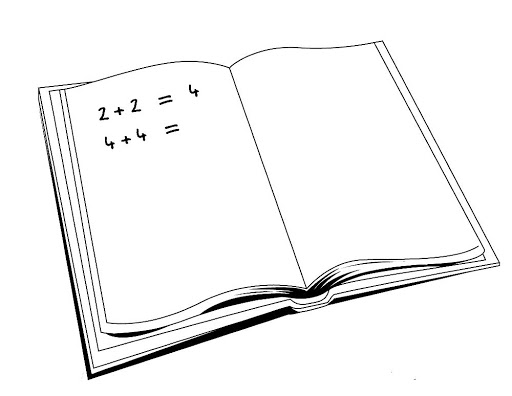 2+2 = 4
4+4 =